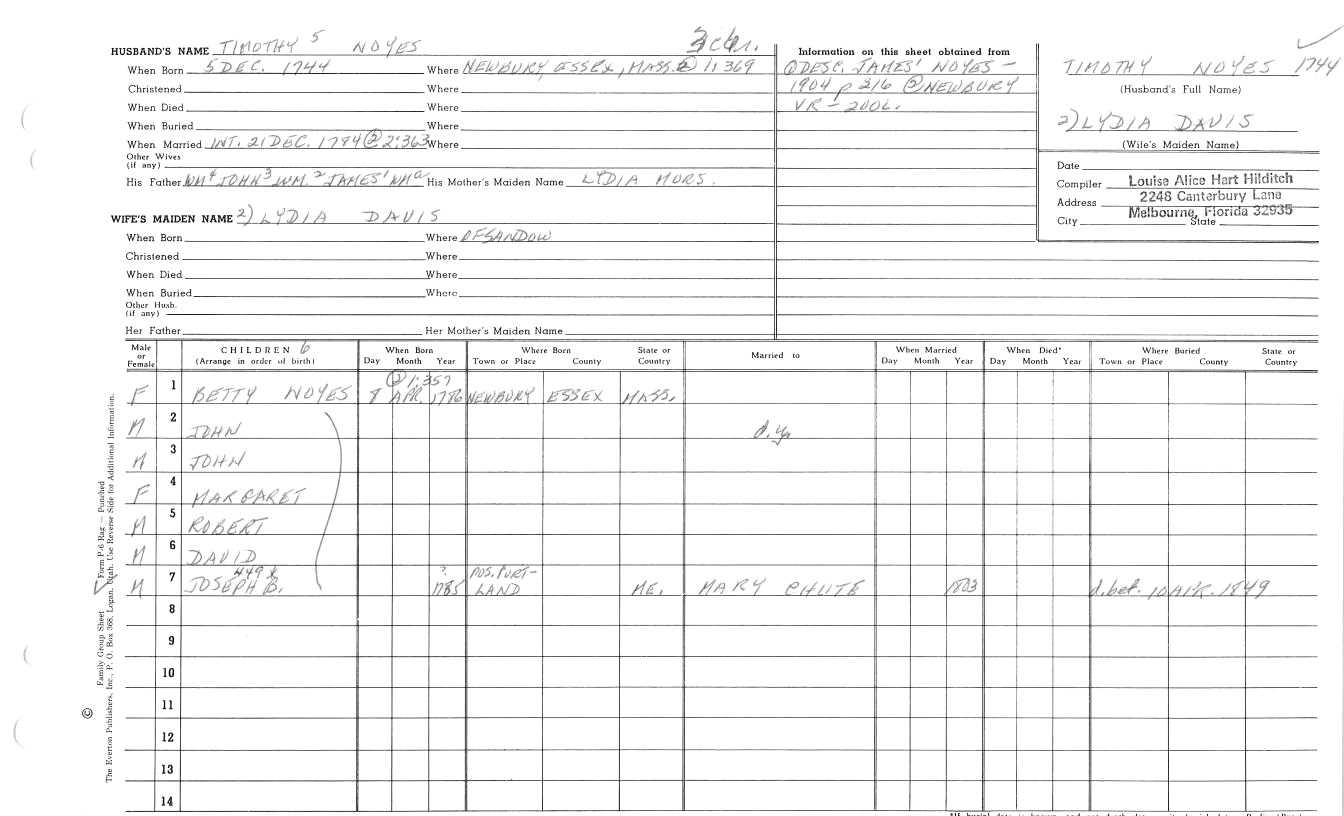 HUSBAND'S NAME TIMOTHY 5 NOYES 3 chr.
When Born 5 DEC. 1744 Where NEWBURY, ESSEX, MASS. ② 1:369
Christened Where
When Died Where
When Buried Where
When Married INT. 21 DEC. 1784 ② 2:363 Where
Other Wives
(if any)
His Father WM4 JOHN3 WM.2 JAMES1 WMa His Mother's Maiden Name LYDIA MORS.
WIFE'S MAIDEN NAME 2) LYDIA DAVIS
When Born Where OF SANDOW
Christened Where
When Died Where
When Buried Where
Other Husb.
(if any)
Her Father Her Mother's Maiden Name
Information on this sheet obtained from
① DESC. JAMES1 NOYES –
1904 p 216 ② NEWBURY
VR –
TIMOTHY NOYES 1744
(Husband's Full Name)
2) LYDIA DAVIS
(Wife's Maiden Name)
Date
Compiler Louise Alice Hart Hilditch
Address 2248 Canterbury Lane
Melbourne, Florida 32935
City State
Male or Female CHILDREN 6 (Arrange in order of birth) When Born Day Month Year Where Born Town or Place County State or Country Married to When Married Day Month Year When Died* Day Month Year Where Buried Town or Place County State or Country
② 1:357
F 1 BETTY NOYES 8 APR. 1786 NEWBURY ESSEX MASS.
M 2 JOHN d.y.
M 3 JOHN
F 4 MARGARET
M 5 ROBERT
M 6 DAVID
449 x ? POS. PORT-
M 7 JOSEPH B. 1785 LAND ME. MARY CHUTE 1803 d. bef. 10 APR. 1849
8
9
10
11
12
13
14
Family Group Sheet Form P-6 Rag — Punched
© The Everton Publishers, Inc., P. O. Box 368, Logan, Utah. Use Reverse Side for Additional Information.